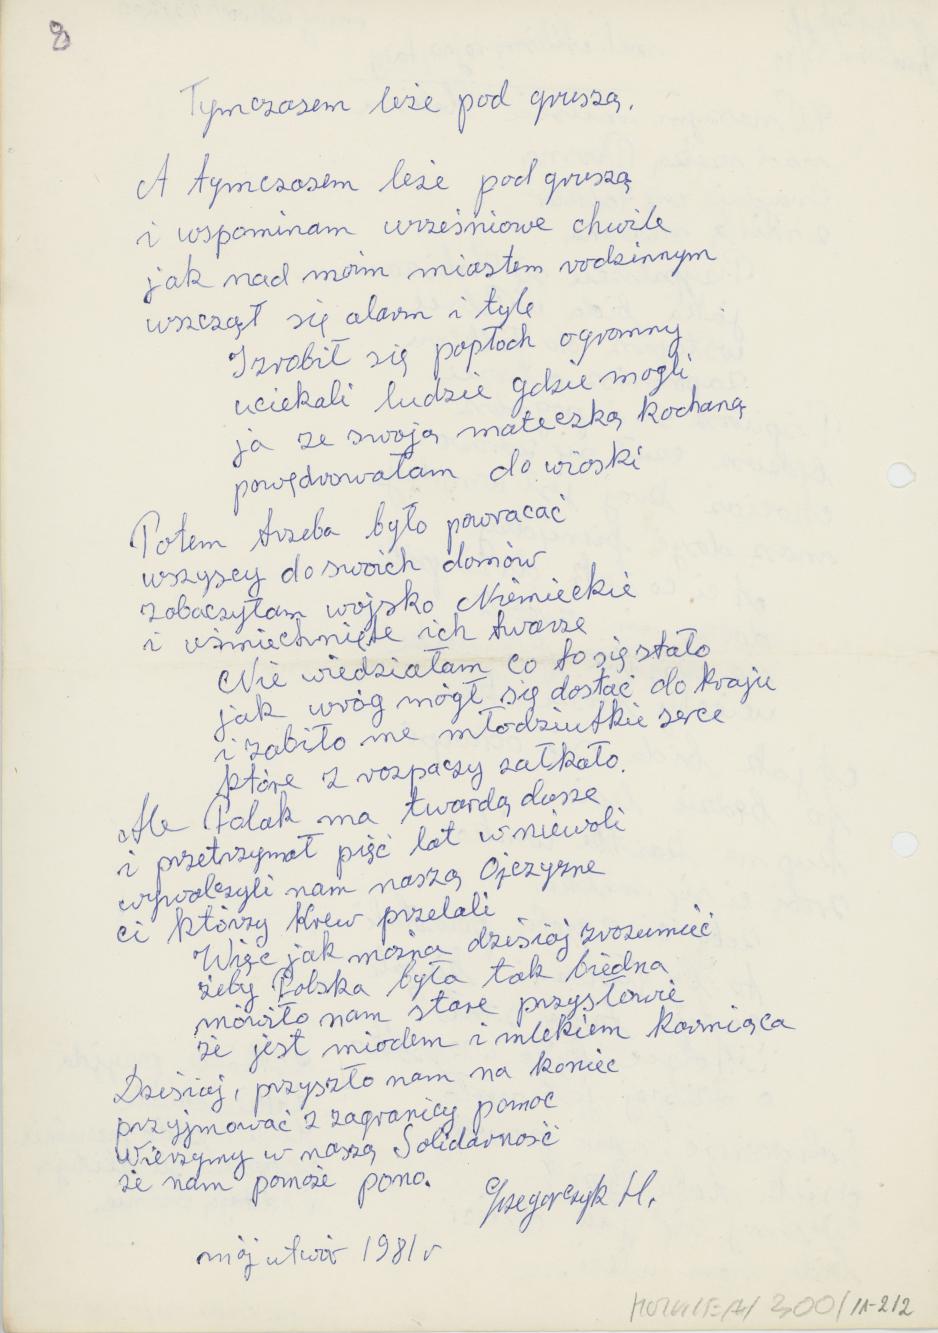 8
Tymczasem leże pod gruszą.
A tymczasem leże pod gruszą
i wspominam wrześniowe chwile
jak nad moim miastem rodzinnym
wszczął się alarm i tyle
I zrobił się popłoch ogromny
uciekali ludzie gdzie mogli
ja ze swoją mateczką kochaną
powędrowałam do wioski
Potem trzeba było powracać
wszyscy do swoich domów
zobaczyłam wojsko Niemieckie
i uśmiechnięte ich twarze
Nie wiedziałam co to się stało
jak wróg mógł się dostać do kraju
i zabiło me młodziutkie serce
które z rozpaczy załkało.
Ale Polak ma twardą dusze
i przetrzymał pięć lat w niewoli
wywalczyli nam naszą Ojczyzne
ci którzy krew przelali
Więc jak można dzisiaj zrozumieć
żeby Polska była tak biedna
mówiło nam stare przysłowie
że jest miodem i mlekiem karmiąca
Dzisiaj, przyszło nam na koniec
przyjmować z zagranicy pomoc
Wierzymy w naszą Solidarność
że nam pomoże pono.
Grzegorczyk H.
mój utwór 1981 r
300/